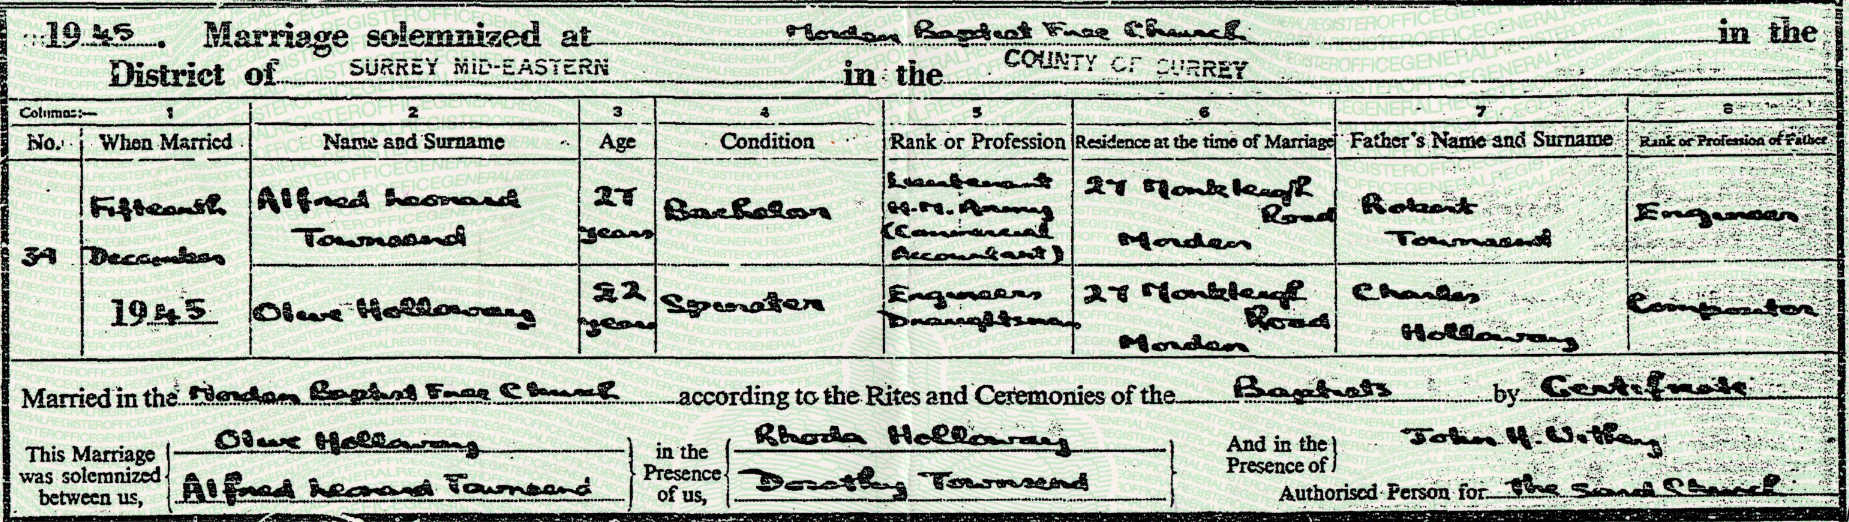 1945. Marriage solemnized at Morden Baptist Free Church in the
District of SURREY MID-EASTERN in the COUNTY OF SURREY
Columns:— 1 2 3 4 5 6 7 8
No. When Married Name and Surname Age Condition Rank or Profession Residence at the time of Marriage Father's Name and Surname Rank or Profession of Father
39 Fifteenth December 1945
Alfred Leonard Townsend 27 years Bachelor Lieutenant H.M. Army (Commercial Accountant) 27 Monkleigh Road Morden Robert Townsend Engineer
Olive Holloway 22 years Spinster Engineers Draughtsman 27 Monkleigh Road Morden Charles Holloway Compositor
Married in the Morden Baptist Free Church according to the Rites and Ceremonies of the Baptists by Certificate
This Marriage was solemnized between us, Olive Holloway Alfred Leonard Townsend
in the Presence of us, Rhoda Holloway Dorothy Townsend
And in the Presence of John H. Withey
Authorised Person for The said Church